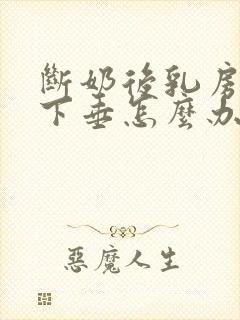 斷奶後乳房
下垂怎麼办
惡魔人生